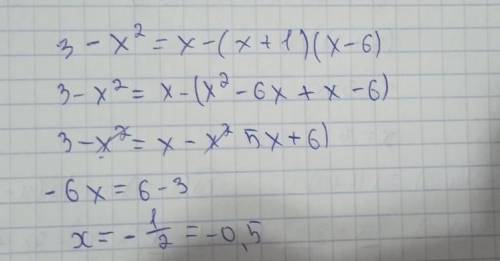 3 - x² = x - (x + 1)(x - 6)
3 - x² = x - (x² - 6x + x - 6)
3 - x² = x - x² 5x + 6)
- 6x = 6 - 3
x = - 1/2 = -0,5